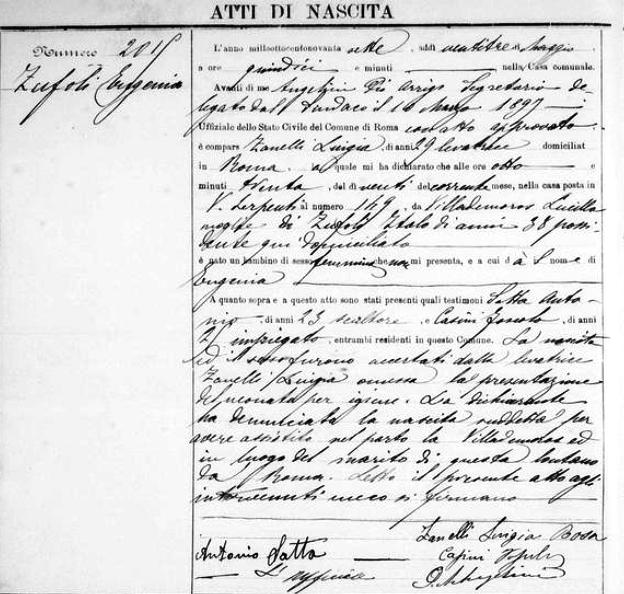 ATTI DI NASCITA
Numero 201
Zufoli Eugenia
L'anno millottocentonovanta sette, addì ventitre di Maggio
a ore quindici e minuti nella Casa comunale.
Avanti di me Angelini Pio Arrigo Segretario de-
legato dal Sindaco il 10 Marzo 1897
Uffiziale dello Stato Civile del Comune di Roma con atto approvato
è compars Zanelli Luigia, di anni 29 levatrice domiciliat
in Roma. a quale mi ha dichiarato che alle ore otto e
minuti trenta, del dì venti del corrente mese, nella casa posta in
V. Serpenti al numero 149, da Villademoros Lucilla
moglie di Zufoli Italo di anni 38 possi-
dente qui domiciliato
è nato un bambino di sesso femminino che non mi presenta, e a cui d à l nom e di
Eugenia
A quanto sopra e a questo atto sono stati presenti quali testimoni Satta Anto-
nio, di anni 23 scultore, e Casini, di anni
impiegato, entrambi residenti in questo Comune. La nascita
ed il sesso furono accertati dalla levatrice
Zanelli Luigia omessa la presentazione
del neonato per igiene. La dichiarante
ha denunciata la nascita suddetta per
avere assistito nel parto la Villademoros ed
in luogo del marito di questa lontano
da Roma. Letto il presente atto agli
intervenuti meco si firmano
Zanelli Luigia
Antonio Satta